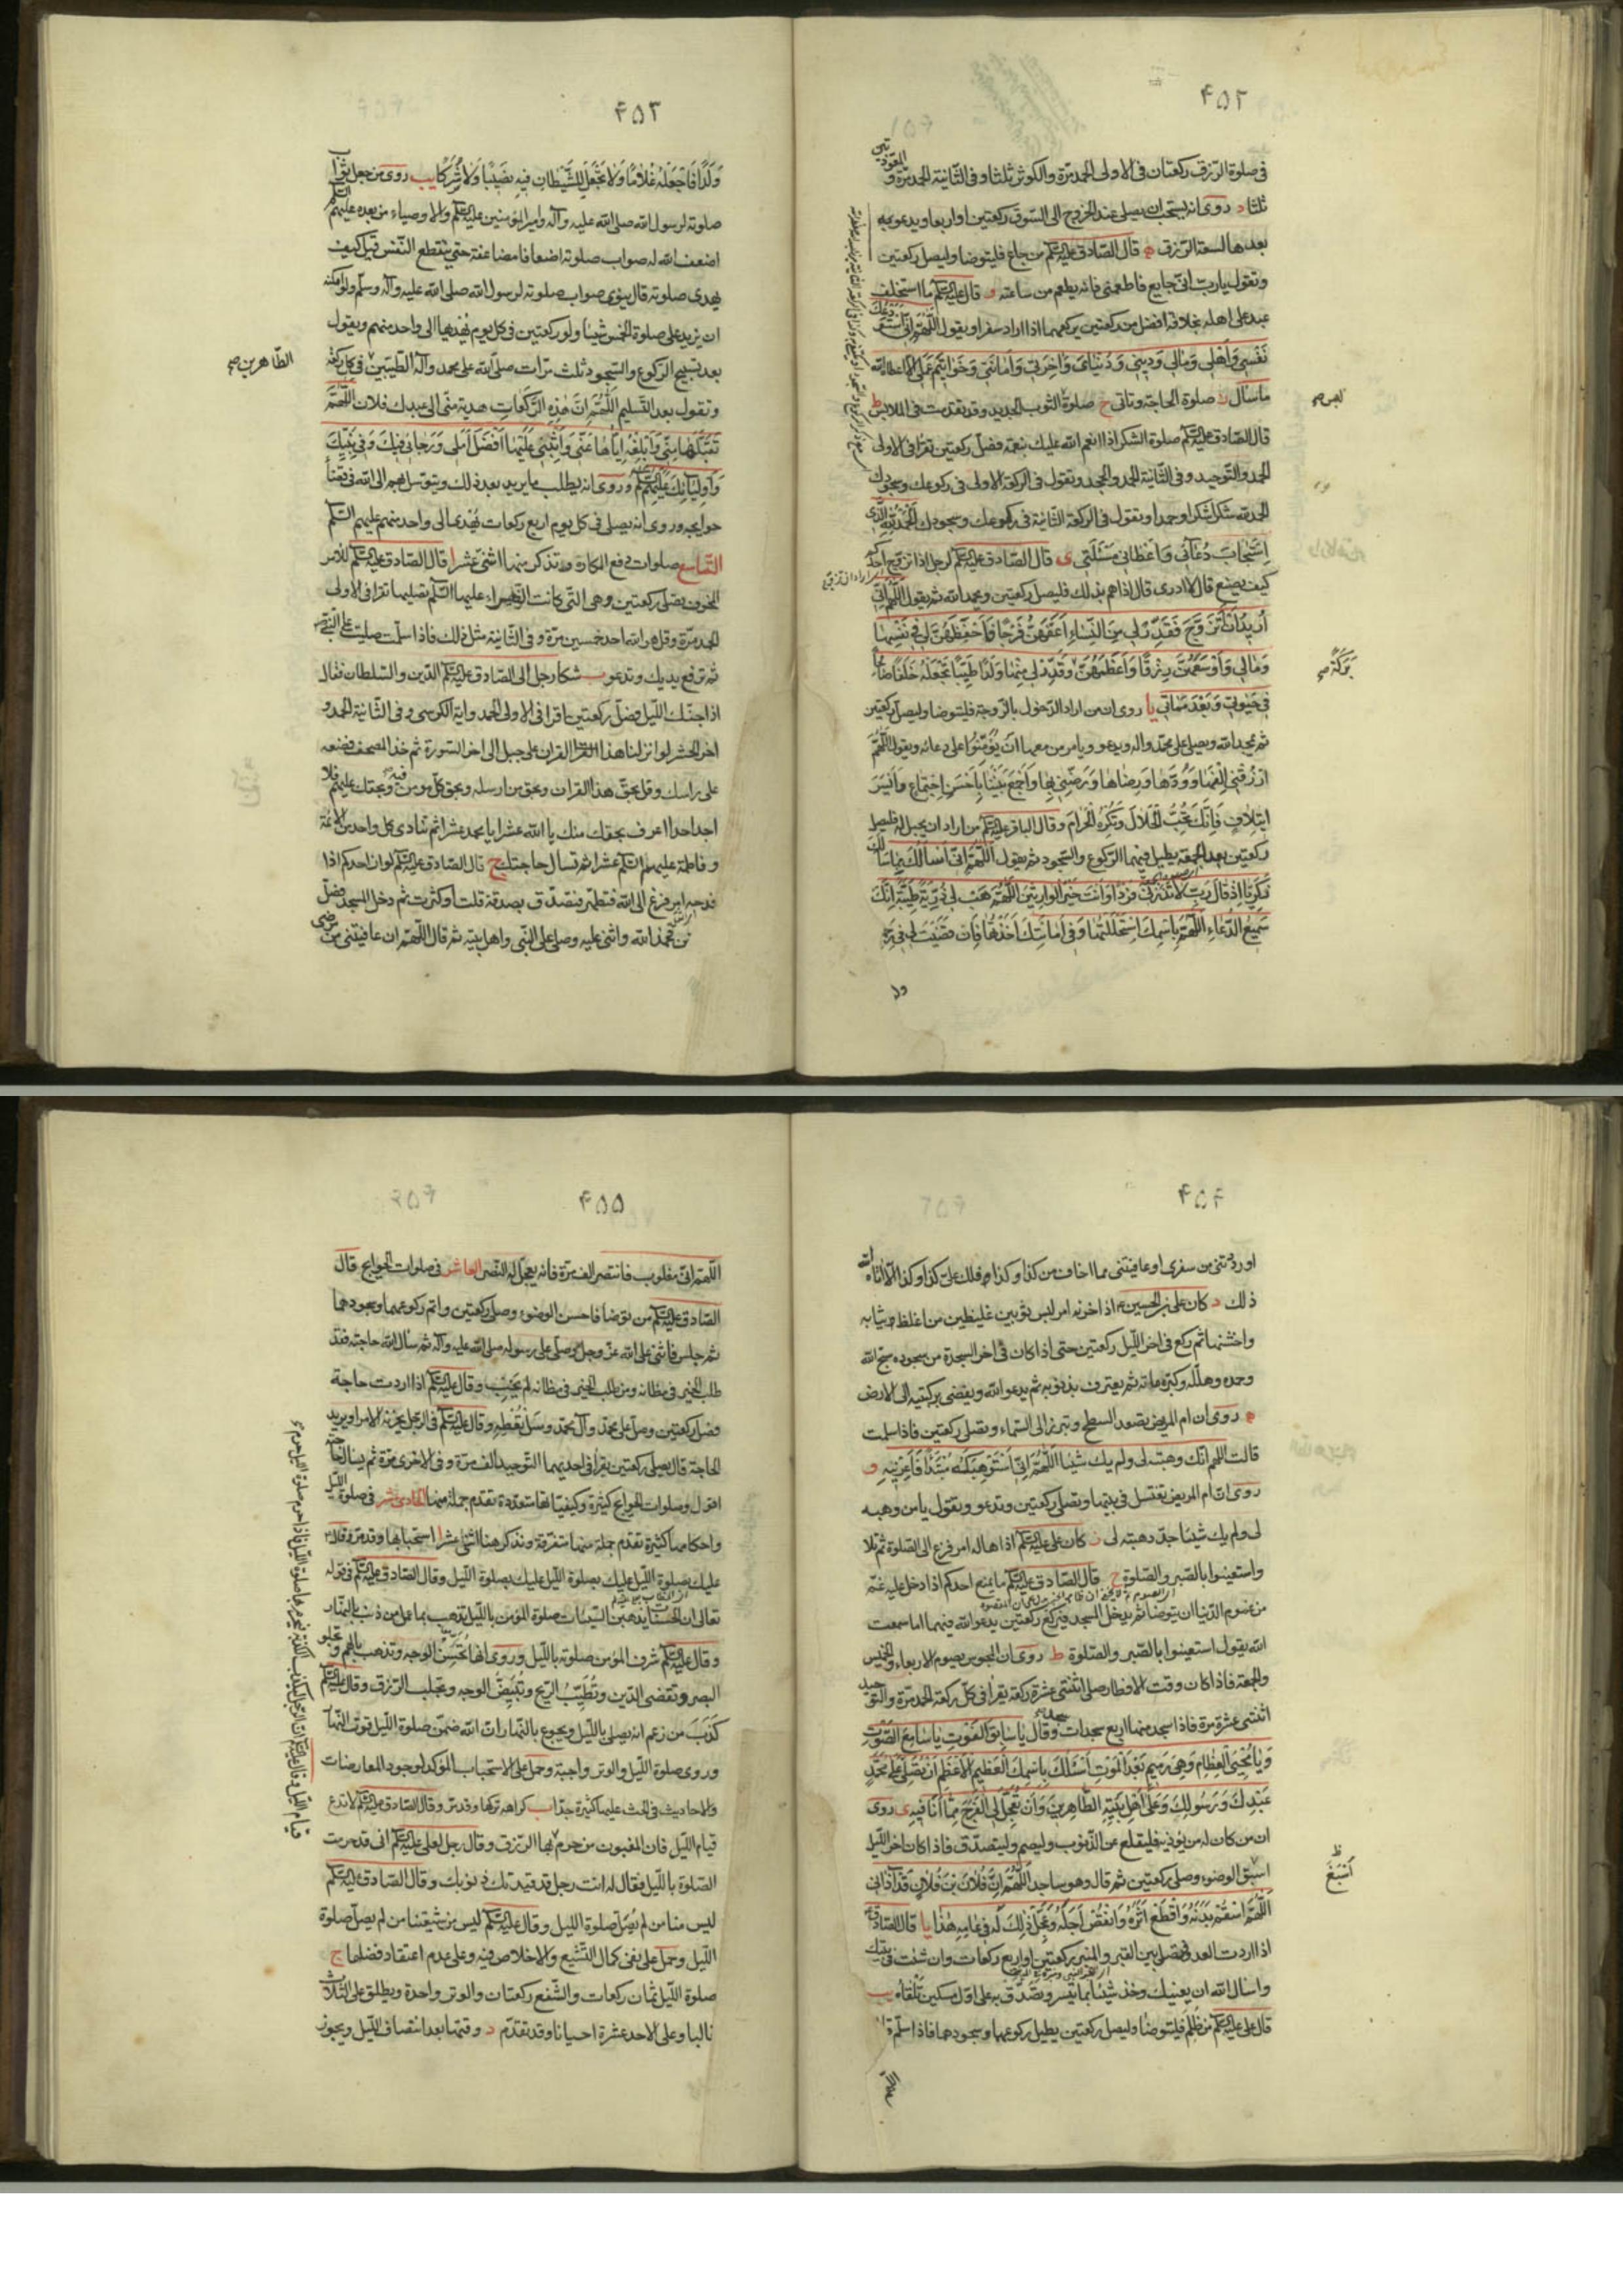 ۴۵۲
فى صلوة الرزق ركعتان فى الاولى الحمد مرّة والكوثر ثلثا وفى الثانية الحمد مرة و المعوذتين
ثلثا د روى انه يستحب ان يصلى عند الخروج الى السوق ركعتين او اربعا ويدعو
بعدها لسعة الرزق ه قال الصادق عليه السلم من جاع فليتوضا وليصل ركعتين
ويقول يارب انى جايع فاطعمنى فانه يطعم من ساعته و قال عليه السلم ما استخلف
عبد على اهله بخلافة افضل من ركعتين يركعهما اذا اراد سفرا ويقول اللّهُمَّ اِنّى اَسْتَوْدِعُكَ
نَفْسى وَاَهْلى وَمالى وَدينى وَدُنْياىَ وَاخِرَتى وَاَمانَتى وَخَواتيمَ عَمَلى الا اعطاه الله
ما سال ز صلوة الحاجة وتاتى ح صلوة الثوب الجديد وقد تقدمت فى الملابس ط
قال الصادق عليه السلم صلوة الشكر اذا انعم الله عليك بنعمة فصل ركعتين تقرا فى الاولى
الحمد والتوحيد وفى الثانية الحمد والجحد وتقول فى الركعة الاولى فى ركوعك وسجودك
الحمد لله شكرا شكرا وحمدا وتقول فى الركعة الثانية فى ركوعك وسجودك الْحَمْدُ لِلّهِ الَّذى
اِسْتَجابَ دُعآئى وَاَعْطانى مَسْئَلَتى ى قال الصادق عليه السلم لرجل اذا تزوج احدكم
كيف يصنع قال لا ادرى قال اذا هم بذلك فليصل ركعتين ويحمد الله ثم يقول اللّهُمَّ اِنّى
اُريدُ اَنْ اَتَزَوَّجَ فَقَدِّرْ لى مِنَ النِّساءِ اَعَفَّهُنَّ فَرْجًا وَاَحْفَظَهُنَّ لى فى نَفْسِها
وَمالى وَاَوْسَعَهُنَّ رِزْقًا وَاَعْظَمَهُنَّ وَقَدِّرْ لى مِنْها وَلَدًا طَيِّبًا تَجْعَلُهُ خَلَفًا صالِحًا
فى حَيوتى وَبَعْدَ مَماتى يا روى ان من اراد الدخول بالزوجة فليتوضا وليصل ركعتين
ثم يمجد الله ويصلى على محمد واله ويدعو ويامر من معها ان يُؤَمِّنُوا على دعائه ويقول اللّهُمَّ
ارْزُقْنى اِلْفَها وَوُدَّها وَرِضاها وَرَضِّنى بِها وَاجْمَعْ بَيْنَنا بِاَحْسَنِ اجْتِماعٍ وَاَيْسَرِ
ايتِلافٍ فَاِنَّكَ تُحِبُّ الْحَلالَ وَتَكْرَهُ الْحَرامَ وقال الباقر عليه السلم من اراد ان يحبل له فليصل
ركعتين بعد الجمعة يطيل فيهما الركوع والسجود ثم يقول اَللّهُمَّ اِنّى اَسْاَلُكَ بِما سَاَلَكَ
زَكَرِيّا اِذْ قالَ رَبِّ لا تَذَرْنى فَرْدًا وَاَنْتَ خَيْرُ الْوارِثينَ اَللّهُمَّ هَبْ لى ذُرِّيَّةً طَيِّبَةً اِنَّكَ
سَميعُ الدُّعاءِ اللّهُمَّ بِاسْمِكَ اسْتَحْلَلْتُها وَفى اَمانَتِكَ اَخَذْتُها فَاِنْ قَضَيْتَ لى فى رَحِمِها
بَرَكَةً صح
۴۵۳
وَلَدًا فَاجْعَلْهُ غُلامًا وَلا تَجْعَلْ لِلشَّيْطانِ فيهِ نَصيبًا وَلا شِرْكًا يب روى من جعل ثواب
صلوته لرسول الله صلى الله عليه وآله وامير المؤمنين عليه السلم والاوصياء من بعده عليهم السلم
اضعف الله له صواب صلوته اضعافا مضاعفة حتى ينقطع النفس قيل كيف
يهدى صلوته قال ينوى صواب صلوته لرسول الله صلى الله عليه وآله وسلم ولو امكنه
ان يزيد على صلوة الخمس شيئا ولو ركعتين فى كل يوم يُهديها الى واحد منهم ويقول
بعد تسبيح الركوع والسجود ثلث مرّات صلّى الله على محمد وآله الطيبين فى كل ركعة
الطّاهرين صح
وتقول بعد التسليم اَللّهُمَّ اِنَّ هذِهِ الرَّكَعاتِ هديه منّى الى عبدك فلان اَللّهُمَّ
تَقَبَّلْها مِنّى وَاَبْلِغْهُ اِيّاها عَنّى وَاَثِبْنى عَلَيْها اَفْضَلَ اَمَلى وَرَجائى فيكَ وَفى نَبِيِّكَ
وَاَوْلِيائِكَ عَلَيْهِمُ السلم وروى انه يطلب ما يريد بعد ذلك ويتوسل بهم الى الله فى قضاء
حوايجه وروى انه يصلى فى كل يوم اربع ركعات يُهْدى الى واحد منهم عليهم السلم
التاسع صلوات دفع المكاره ونذكر منها اثنى عشر ا قال الصادق عليه السلم للامر
المخوف يصلى ركعتين وهى التى كانت الزهراء عليها السلم تصليها تقرا فى الاولى
الحمد مرّة وقل هو الله احد خمسين مرّة وفى الثانية مثل ذلك فاذا سلّمت صليت على النبى ص
ثم ترفع يديك وتدعو ب شكا رجل الى الصادق عليه السلم الدين والسلطان فقال
اذا جنّك الليل فصل ركعتين اقرا فى الاولى الحمد واية الكرسى وفى الثانية الحمد و
اخر الحشر لو انزلنا هذا القران على جبل الى اخر السورة ثم خذ المصحف فضعه
على راسك وقل بحق هذا القران وبحق من ارسله وبحق كل مومن فيه وبحقك عليهم فلا
احد احدا اعرف بحقك منك يا الله عشرا يا محمد عشرا ثم تنادى كل واحد من الائمة
وفاطمة عليهم السلم عشرا ثم تسال حاجتك ج قال الصادق عليه السلم لو ان احدكم اذا
فدحه امر فزع الى الله فتطهر فتصدق بصدقة قلت او كثرت ثم دخل المسجد فصلّى
ركعتين فحمد الله واثنى عليه وصلى على النبى واهل بيته ثم قال اللهم ان عافيتنى من مرضى
۴۵۴
او رددتنى من سفرى او عافيتنى مما اخاف من كذا وكذا فلك على كذا وكذا الا اتاه الله
ذلك د كان على بن الحسين ع اذا حزنه امر لبس ثوبين غليظين من اغلظ ثيابه
واخشنها ثم ركع فى اخر الليل ركعتين حتى اذا كان فى اخر السجدة من سجوده سبح الله
وحمده وهلله وكبّره مائة ثم يعترف بذنوبه ثم يدعو الله ويفضى بركبتيه الى الارض
ه روى ان ام المريض تصعد السطح وتبرز الى السماء وتصلى ركعتين فاذا سلمت
قالت اللهم انّك وهبته لى ولم يك شيئا اَللّهُمَّ اِنّى اَسْتَوْهِبُكَهُ مُبْتَدِءًا فَاَعِرْنيهِ و
روى ان ام المريض تغتسل فى بيتها وتصلى ركعتين وتدعو وتقول يا من وهبه
لى ولم يك شيئا جدّد هبته لى ز كان على عليه السلم اذا هاله امر فزع الى الصلوة ثم تلا
واستعينوا بالصبر والصلوة ح قال الصادق عليه السلم ما يمنع احدكم اذا دخل عليه غم
من غموم الدنيا ان يتوضا ثم يدخل المسجد فيركع ركعتين يدعو الله فيهما اما سمعت
الله يقول استعينوا بالصبر والصلوة ط روى ان المحبوس يصوم الاربعاء والخميس
والجمعة فاذا كان وقت الافطار صلى اثنتى عشرة ركعة يقرا فى كل ركعة الحمد مرة والتوحيد
اثنتى عشرة مرة فاذا سجد منها اربع سجدات وقال يا سابِقَ الْفَوْتِ يا سامِعَ الصَّوْتِ
وَيا مُحْيِىَ الْعِظامِ وَهِىَ رَميمٌ بَعْدَ الْمَوْتِ اَسْئَلُكَ بِاسْمِكَ الْعَظيمِ الْاَعْظَمِ اَنْ تُصَلِّىَ عَلى مُحَمَّدٍ
عَبْدِكَ وَرَسُولِكَ وَعَلى اَهْلِ بَيْتِهِ الطّاهِرينَ وَاَنْ تُعَجِّلَ لِىَ الْفَرَجَ مِمّا اَنَا فيهِ ى روى
ان من كان له من يؤذيه فليقلع عن الذنوب وليصم وليتصدّق فاذا كان اخر الليل
اسبغ الوضوء وصلى ركعتين ثم قال وهو ساجد اَللّهُمَّ اِنَّ فُلانَ بْنَ فُلانٍ قَدْ آذانى
اَللّهُمَّ اسْقُمْ بَدَنَهُ وَاقْطَعْ اَثَرَهُ وَانْقُصْ اَجَلَهُ وَعَجِّلْ ذلِكَ لَهُ فى عامِهِ هذا يا قال الصادق ع
اذا اردت العدو فصل بين القبر والمنبر ركعتين او اربع ركعات وان شئت فى بيتك
واسال الله ان يعينك وخذ شيئا مما تيسر وتصدّق به على اول مسكين تلقاه يب
قال على عليه السلم من ظُلِمَ فليتوضأ وليصل ركعتين يطيل ركوعهما وسجودهما فاذا سلّم قال
۴۵۵
اللّهم انّى مغلوب فانتصر الف مرّة فانه يعجل له النصر العاشر فى صلوات الحوايج قال
الصادق عليه السلم من توضا فاحسن الوضوء وصلى ركعتين واتم ركوعهما وسجودهما
ثم جلس فاثنى على الله عز وجل وصلى على رسوله صلى الله عليه وآله ثم سال الله حاجته فقد
طلب الخير فى مظانه ومن طلب الخير فى مظانه لم يَخِبْ وقال عليه السلم اذا اردت حاجة
فصل ركعتين وصل على محمد وآل محمد وسَلْ تُعْطِهِ وقال عليه السلم فى الرجل يحزنه الامر او يريد
الحاجة قال يصلى ركعتين يقرا فى احديهما التوحيد الف مرة وفى الاخرى مرّة ثم يسال حاجته
اقول وصلوات الحوايج كثيرة وكيفيّاتها متعدّدة تقدم جملة منها الحادى عشر فى صلوة الليل
واحكامها كثيرة تقدم جملة منها متفرقة ونذكر هنا اثنى عشر ا استحبابها وقد مرّ
عليك بصلوة الليل عليك بصلوة الليل عليك بصلوة الليل وقال الصادق عليه السلم فى قوله
تعالى ان الحسنات يذهبن السيّئات صلوة المؤمن بالليل تذهب بما عمل من ذنب بالنهار
وقال عليه السلم شرف المؤمن صلوته بالليل وروى انها تُحَسِّنُ الوجه وتذهب بالهم وتجلو
البصر وتقضى الدين وتُطَيِّبُ الريح وتُبَيِّضُ الوجه وتجلب الرزق وقال عليه السلم
كَذَبَ من زعم انه يصلى بالليل ويجوع بالنهار انّ الله ضمن صلوة الليل قوت النهار
وروى صلوة الليل والوتر واجبة وحمل على الاستحباب المؤكد لوجود المعارضات
والاحاديث فى الحث عليها كثيرة جدّا ب كراهة تركها وقد مرّ وقال الصادق عليه السلم لا تدع
قيام الليل فان المغبون من حرم بها الرزق وقال رجل لعلى عليه السلم انى قد حرمت
الصلوة بالليل فقال له انت رجل قد قيدتك ذنوبك وقال الصادق عليه السلم
ليس منا من لم يُصَلّ صلوة الليل وقال عليه السلم ليس من شيعتنا من لم يصل صلوة
الليل وحمل على نفى كمال التشيع والاخلاص فيه وعلى عدم اعتقاد فضلها ج
صلوة الليل ثمان ركعات والشفع ركعتان والوتر واحدة ويطلق على الثلاث
غالبا وعلى الاحد عشرة احيانا وقد تقدّم د وقتها بعد انتصاف الليل ويجوز